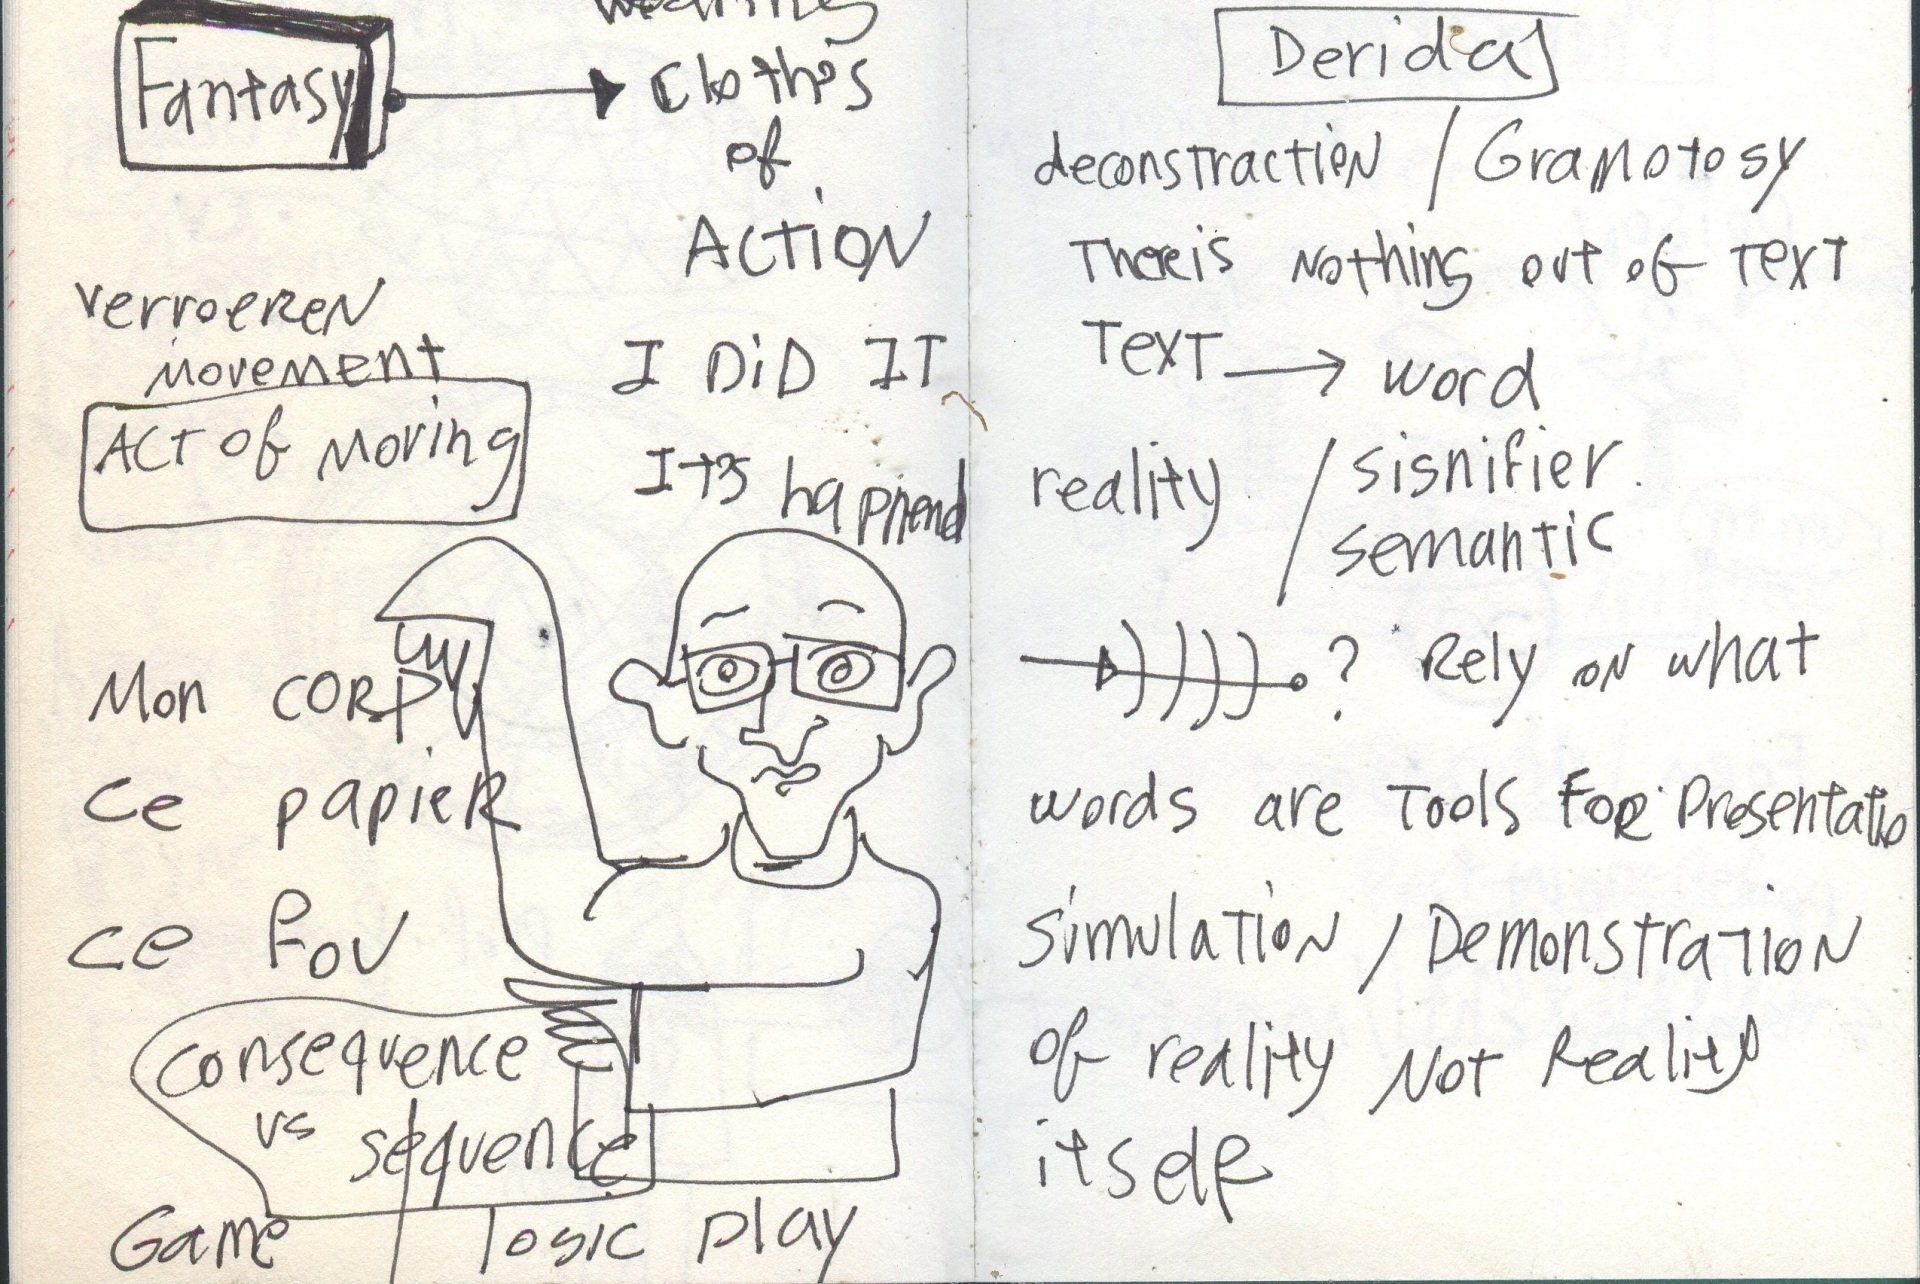 Fantasy
wearing
Cloths
of
ACTION
verroeren
movement
ACT of Moving
I DID IT
Its happend
Mon corp
ce papier
ce fou
consequence
vs sequence
Game / logic play
Derida
deconstraction / Gramotosy
There is Nothing out of Text
Text → word
reality / sisnifier
semantic
? Rely on what
words are Tools For Presentatio
simulation / Demonstration
of reality Not Reality
itself